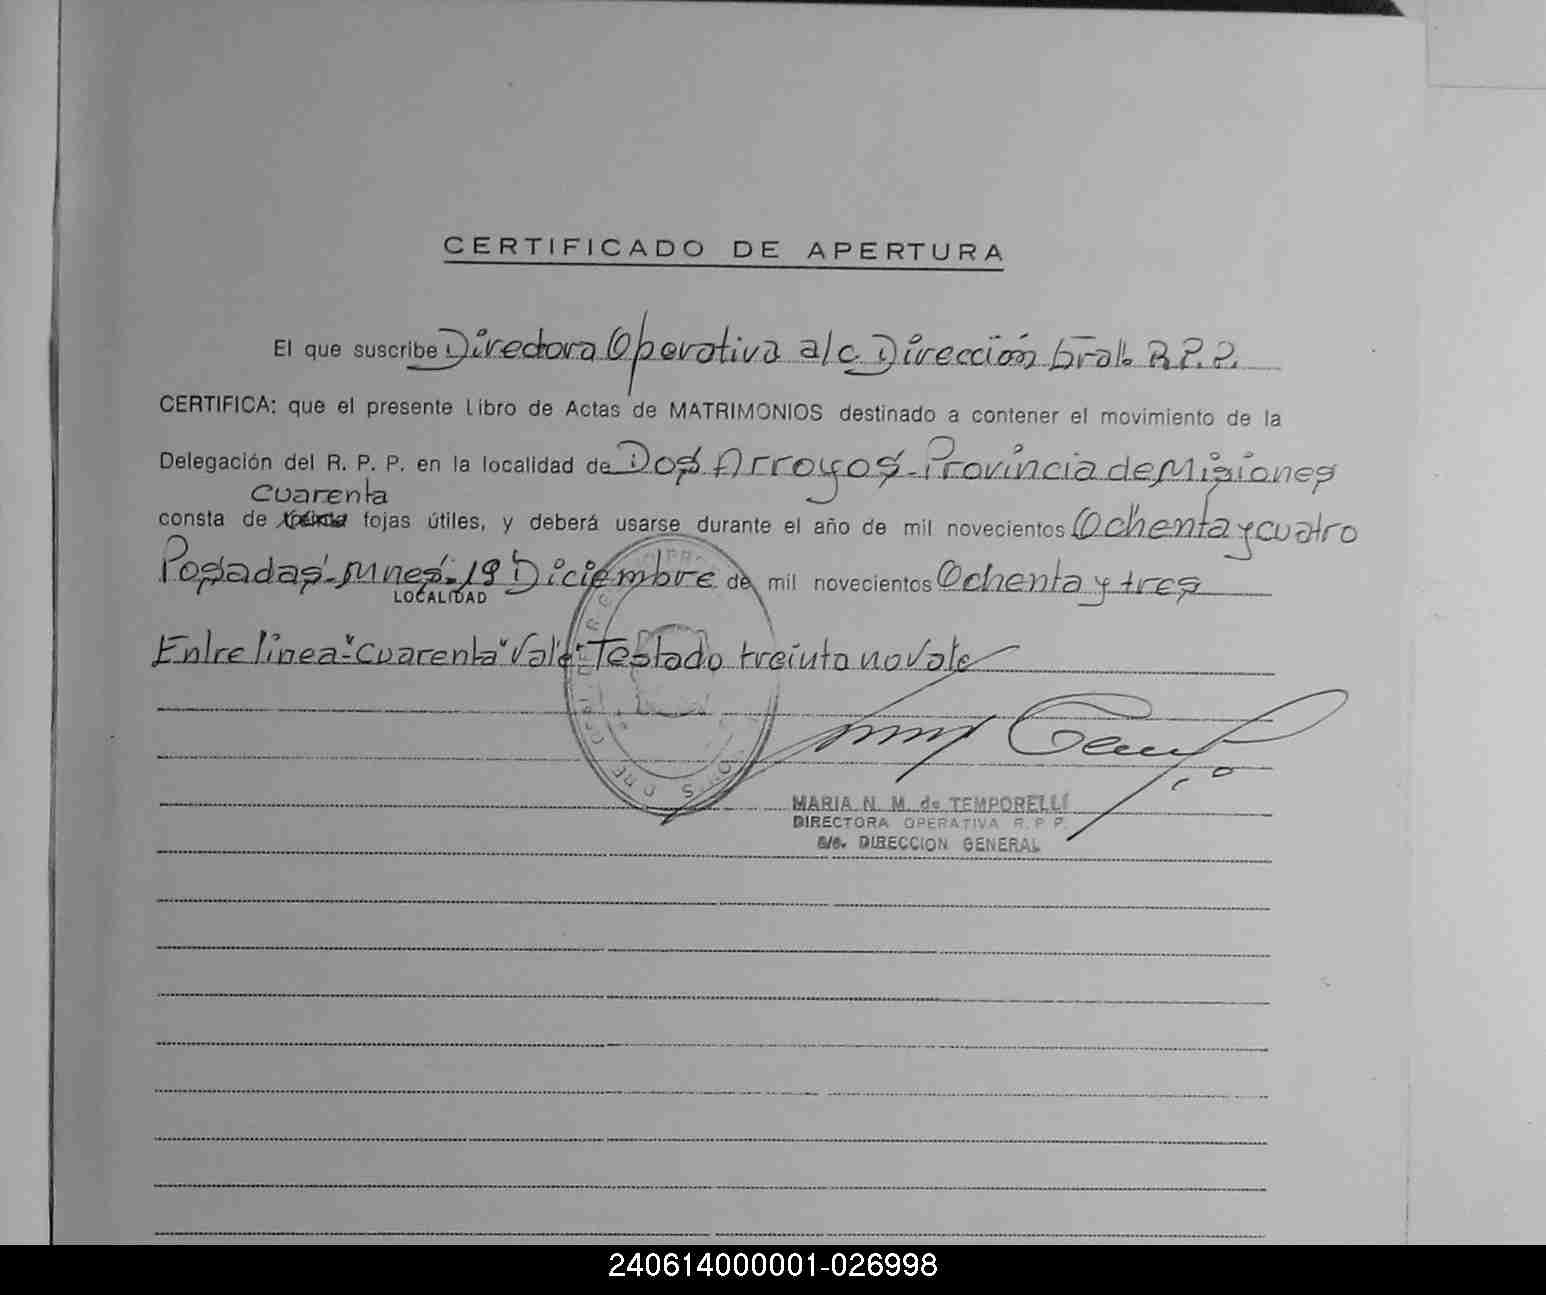 CERTIFICADO DE APERTURA
El que suscribe Directora Operativa a/c Dirección Gral. R.P.P.
CERTIFICA: que el presente Libro de Actas de MATRIMONIOS destinado a contener el movimiento de la
Delegación del R. P. P. en la localidad de Dos Arroyos - Provincia de Misiones
cuarenta
consta de fojas útiles, y deberá usarse durante el año de mil novecientos Ochenta y cuatro
Posadas - Mnes. 19 Diciembre de mil novecientos Ochenta y tres
LOCALIDAD
Entre linea "Cuarenta" Vale - Testado treinta no vale
MARIA N. M. de TEMPORELLI
DIRECTORA OPERATIVA R. P. P.
a/c. DIRECCION GENERAL
240614000001-026998